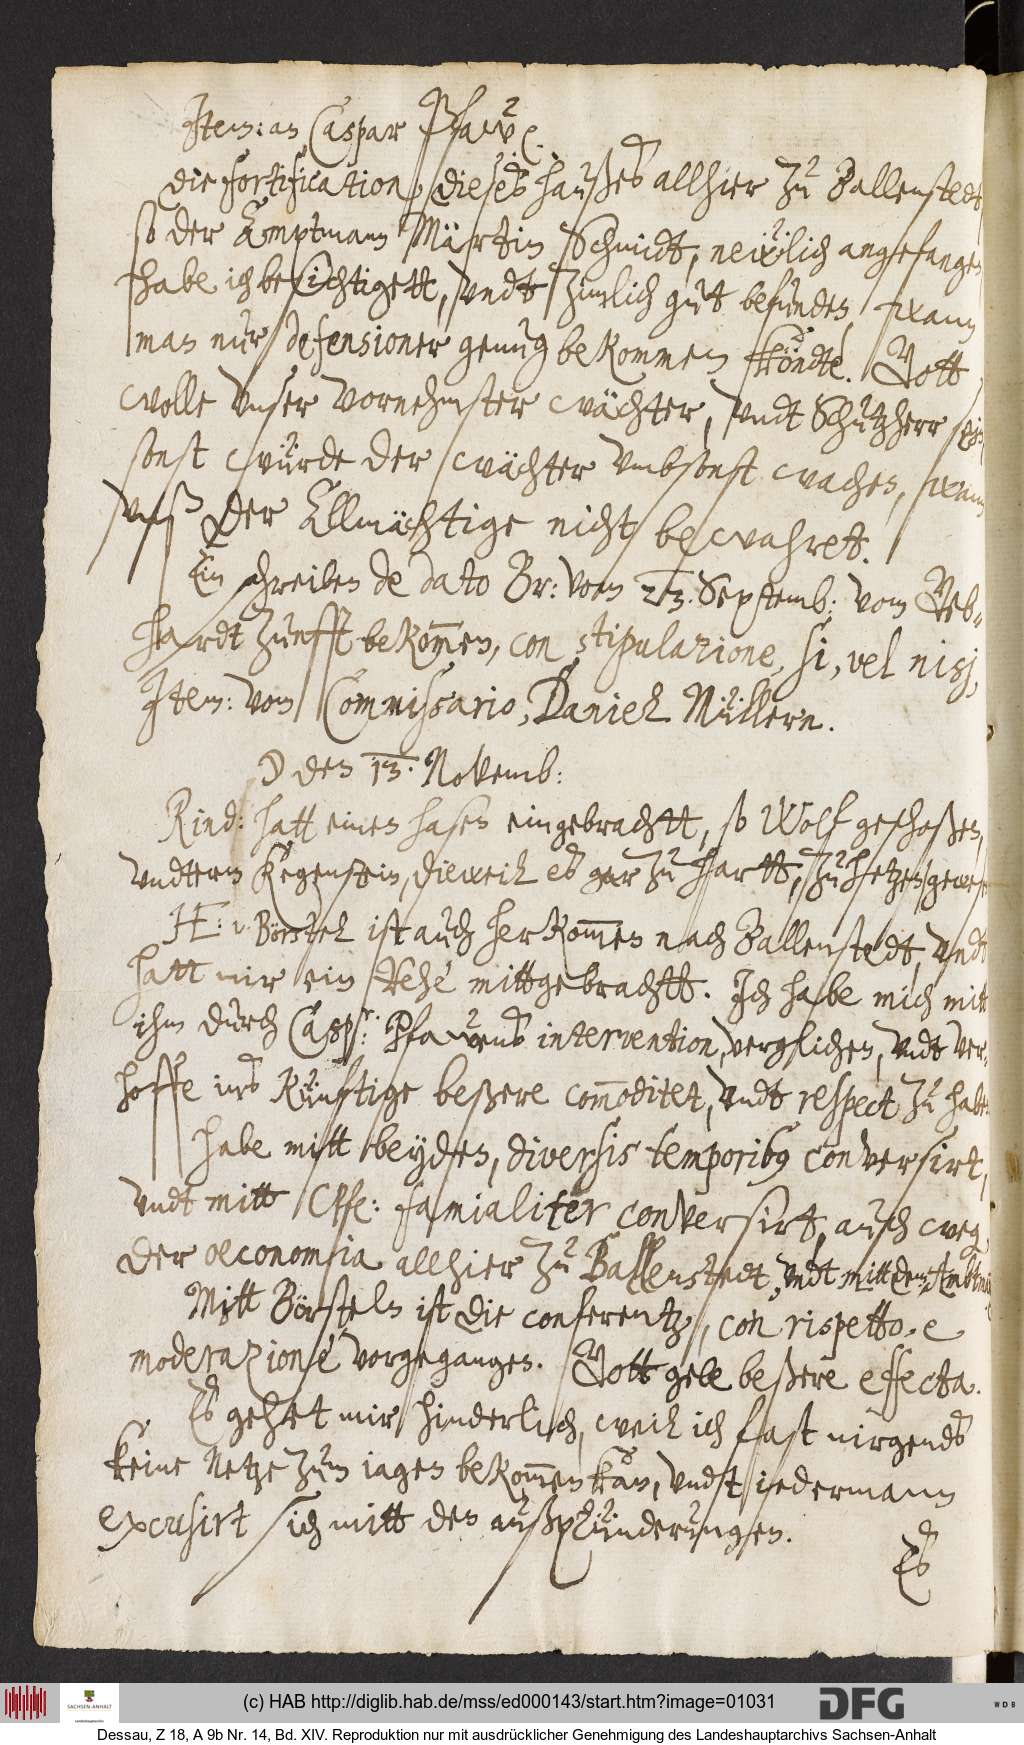 Item: an Caspar Pfaw &c.
Die fortification, dieses haußes allhier zu Ballenstedt
so der Amptmann Märtin Schmidt, neẅlich angefangen
habe ich besichtigett, vndt zimlich gut befunden, wann
man nur defensioner genug bekommen köndte. Gott
wolle vnser vornehmster wächter, vndt Schutzherr sein
sonst würde der wächter vmbsonst wachen, wann
vnß der Allmächtige nicht bewahrett.
Ein schreiben de dato Br: vom 23. Septemb: vom Geb-
hardt Zunfft bekom̅en, con stipulazione, si, vel nisj,
Item: vom Commissario, Daniel Müllern.
☽ den 13. Novemb:
Rind: hatt einen hasen eingebrachtt, so Wolf geschoßen,
vndterm Regenstein, dieweil es gar zu hartt, zu hetzen gewesen
H: v. Börstel ist auch herkom̅en nach Ballenstedt, vndt
hatt mir ein Rehe mittgebrachtt. Ich habe mich mitt
ihm durch Casp.r: Pfawens intervention, verglichen, vndt ver-
hoffe ins künftige beßere com̅oditet, vndt respect zu haben
habe mitt beyden, diversis temporibus conversirt,
vndt mitt CPf: familiariter conversirt, auch weg.
der oeconomia allhier zu Ballenstedt, vndt mitt dem Ambtm
Mitt Börsteln ist die conferentz, con rispetto, e
moderazione vorgegangen. Gott gebe beßere effecta.
Es gehet mir hinderlich, weil ich fast nirgends
keine Netze zum iagen bekom̅en kan, vndt iedermann
excusirt sich mitt den außplünderungen.
Es
(c) HAB http://diglib.hab.de/mss/ed000143/start.htm?image=01031
SACHSEN-ANHALT
DFG
WDB
Dessau, Z 18, A 9b Nr. 14, Bd. XIV. Reproduktion nur mit ausdrücklicher Genehmigung des Landeshauptarchivs Sachsen-Anhalt